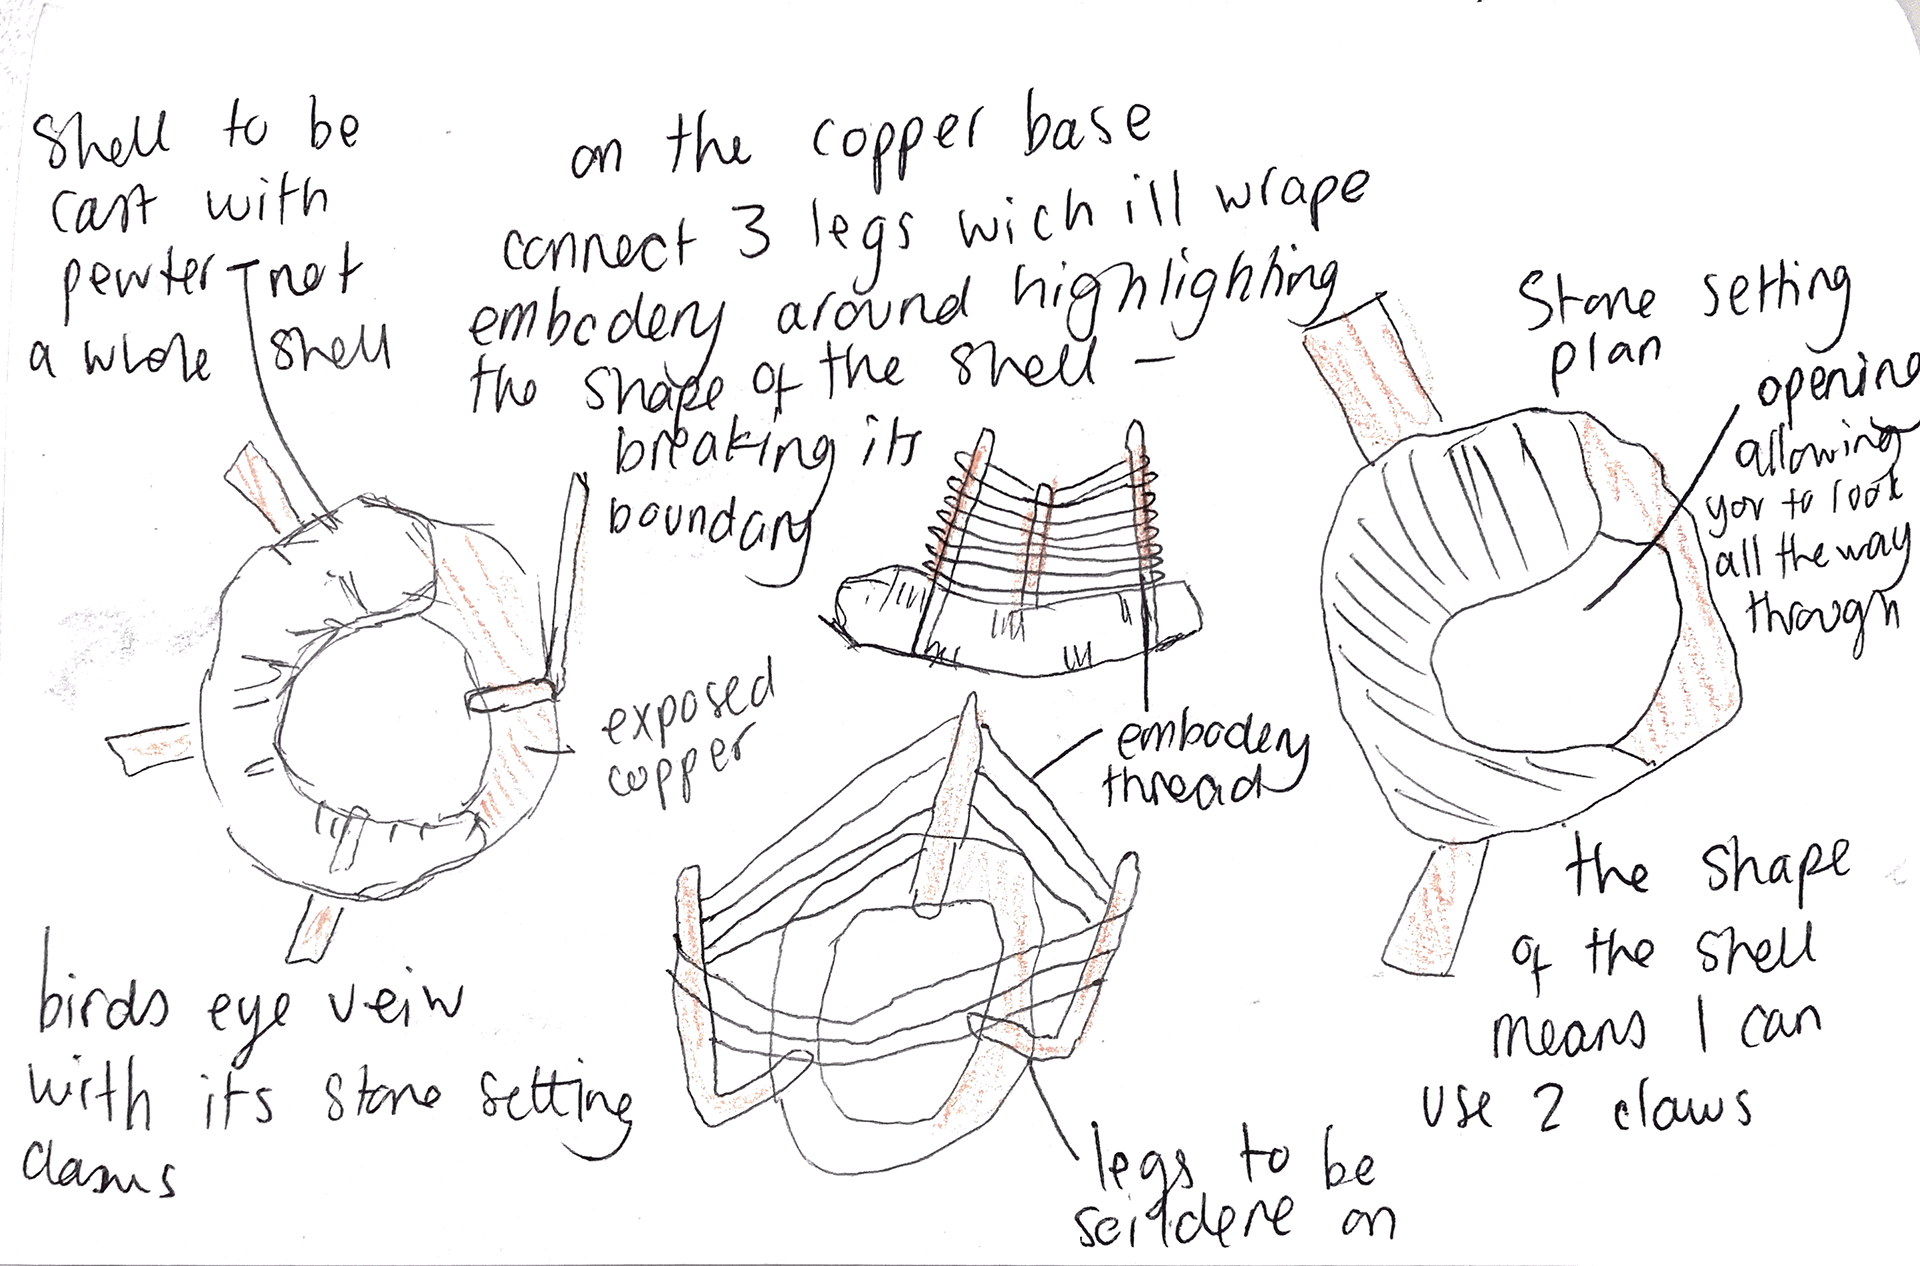 Shell to be
cast with
pewter - not
a whole shell
on the copper base
connect 3 legs wich ill wrape
embodery around highlighting
the shape of the shell -
breaking its
boundary
Stone setting
plan
opening
allowing
you to look
all the way
through
exposed
copper
embodery
thread
birds eye veiw
with its stone setting
claws
the shape
of the shell
means I can
use 2 claws
legs to be
on